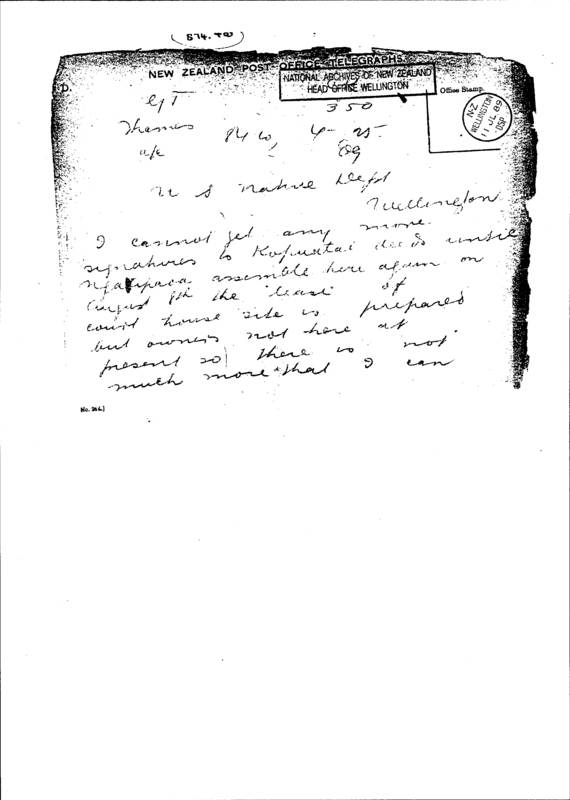 874.
NEW ZEALAND POST OFFICE TELEGRAPHS.
NATIONAL ARCHIVES OF NEW ZEALAND
HEAD OFFICE WELLINGTON
Office Stamp.
N-Z
WELLINGTON
11 JL 89
DSP
350
Thames
U S Native Dept
Wellington
I cannot get any more
signatures to Kopuatai deeds until
Ngatipaoa assemble here again on
August 8th the lease of
court house site is prepared
but owners not here at
present so there is not
much more that I can